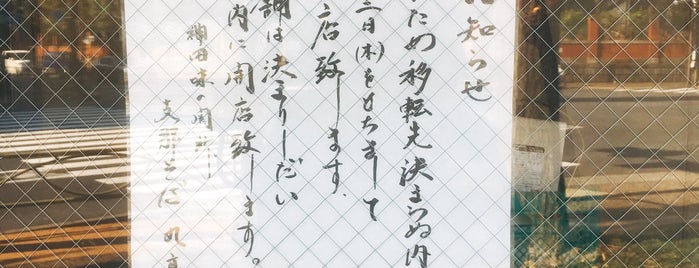 お知らせ
ため移転先決まらぬ内
三日(木)をもちまして
店致します。
舗は決まりしだい
内に開店致します。
神田味の開拓
支那そば